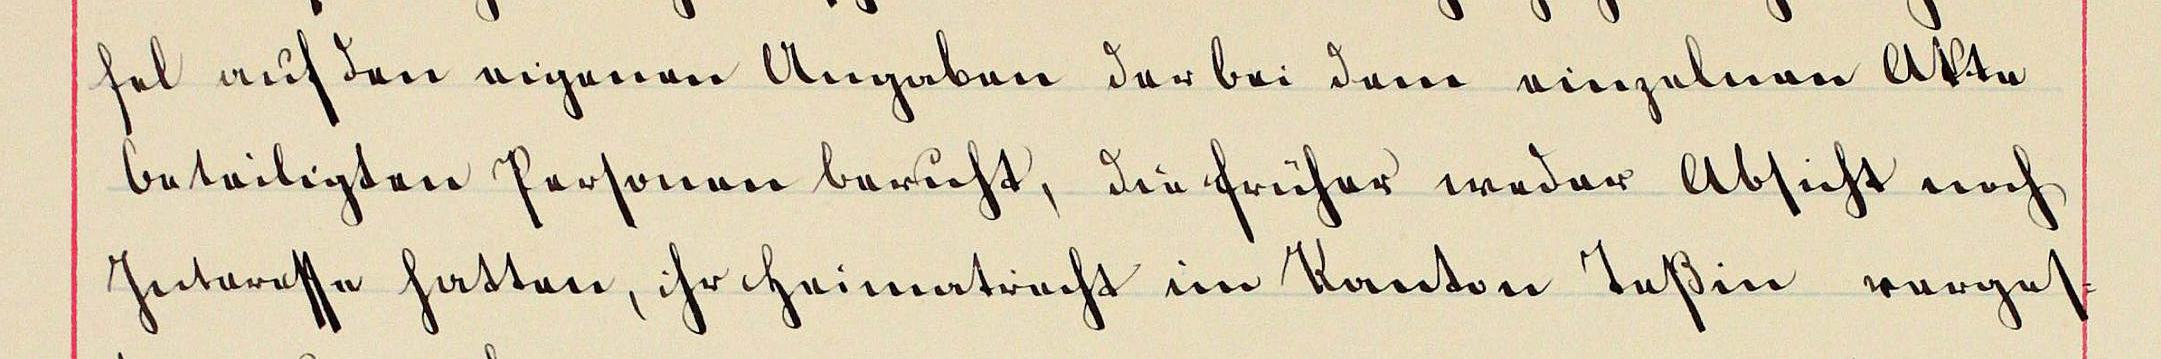 fel auf den eigenen Angaben der bei dem einzelnen Akte
beteiligten Personen beruht, die früher weder Absicht noch
Interesse hatten, ihr Heimatrecht im Kanton Teßin verges-